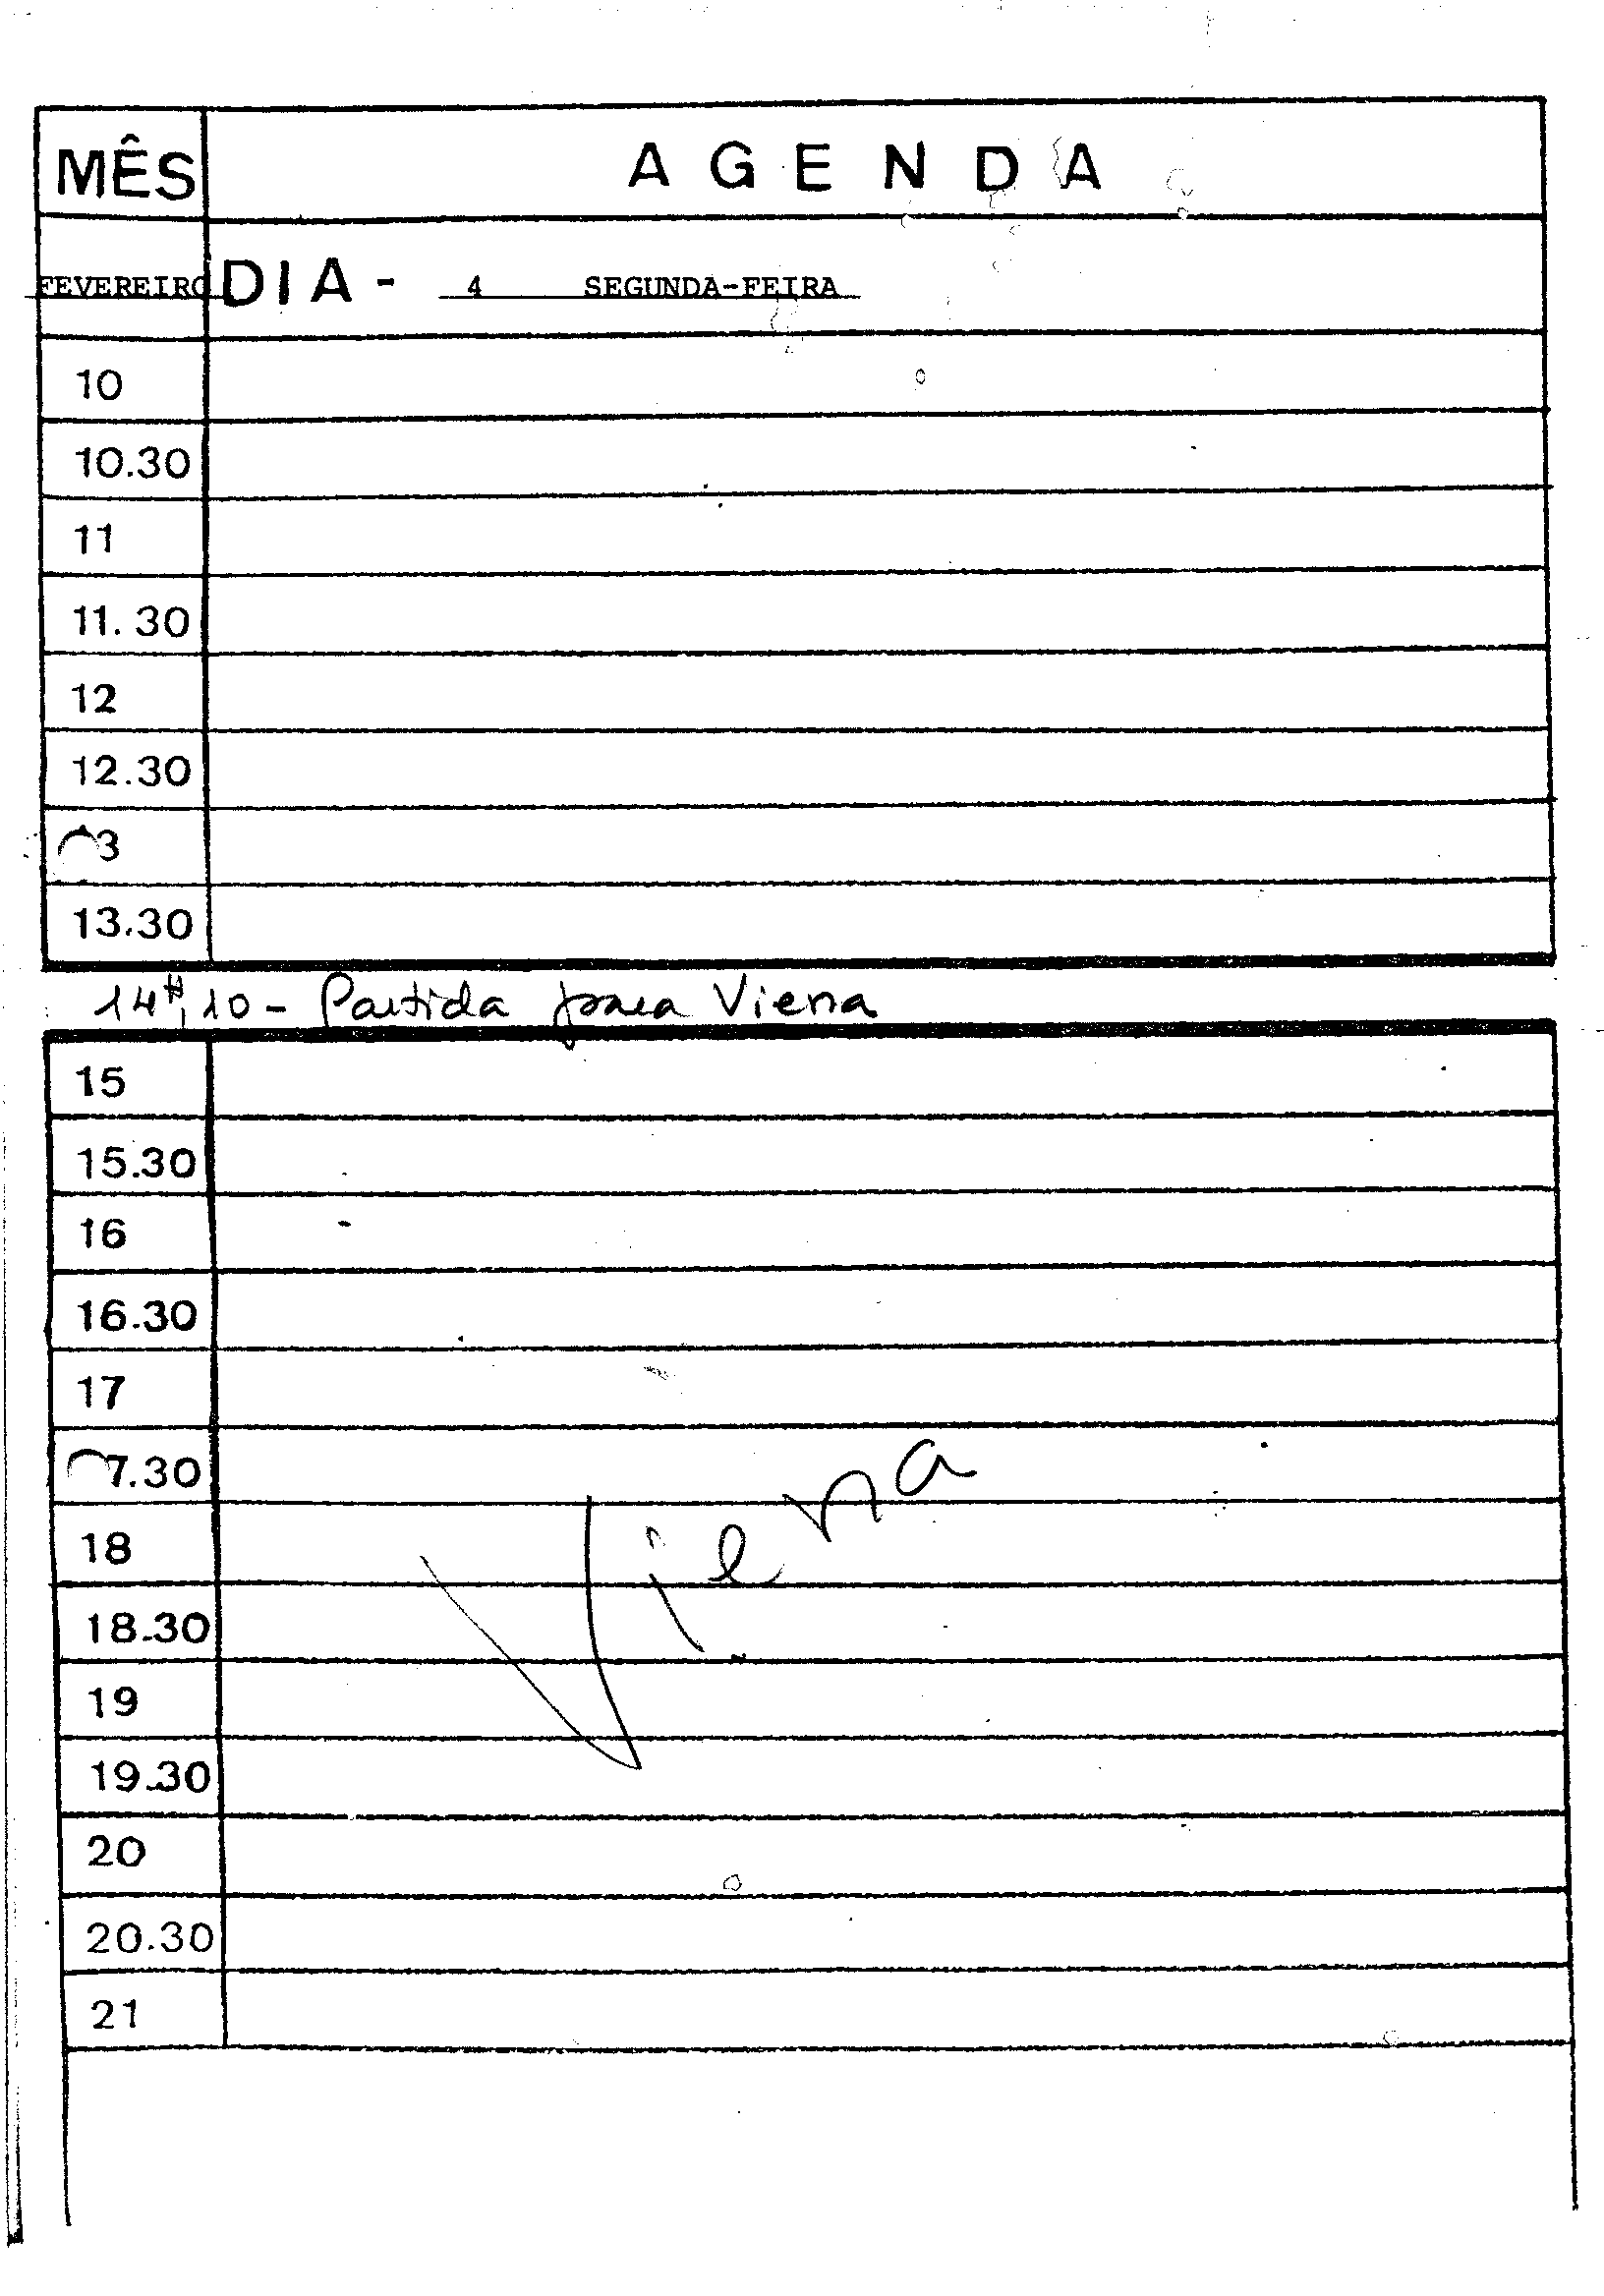 MÊS AGENDA
FEVEREIRO DIA - 4 SEGUNDA-FEIRA
10
10.30
11
11.30
12
12.30
3
13.30
14H,10 - Partida para Viena
15
15.30
16
16.30
17
7.30
Viena
18
18.30
19
19.30
20
20.30
21